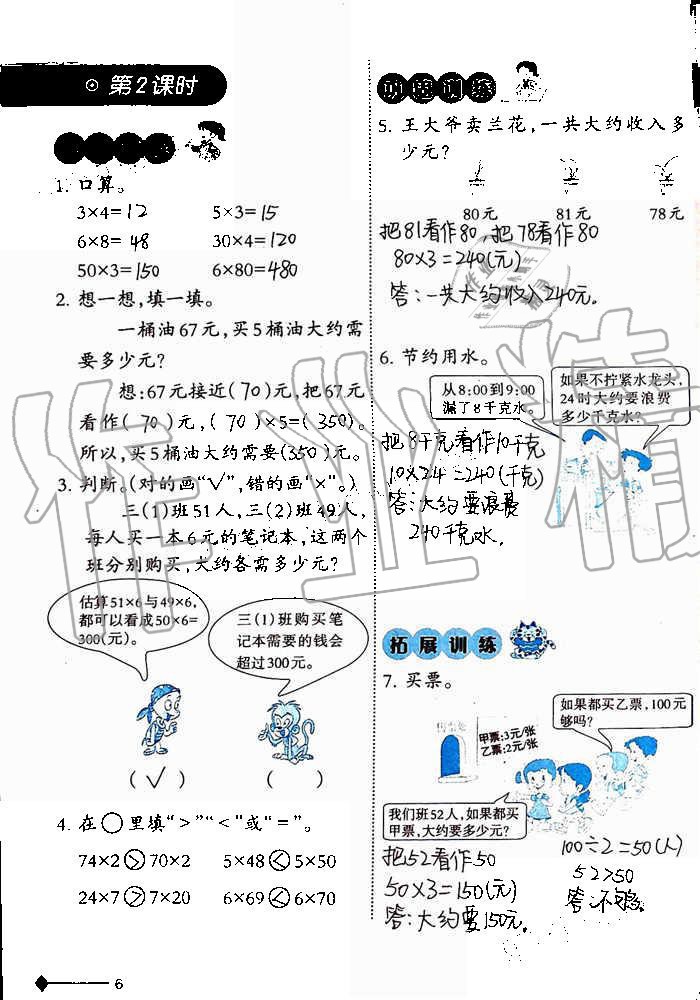 第2课时
1. 口算。
3×4=12 5×3=15
6×8=48 30×4=120
50×3=150 6×80=480
2. 想一想,填一填。
一桶油67元,买5桶油大约需
要多少元?
想:67元接近(70)元,把67元
看作(70)元,(70)×5=(350)。
所以,买5桶油大约需要(350)元。
3. 判断。(对的画“√”,错的画“×”。)
三(1)班51人,三(2)班49人,
每人买一本6元的笔记本,这两个
班分别购买,大约各需多少元?
估算51×6与49×6,
都可以看成50×6=
300(元)。
三(1)班购买笔
记本需要的钱会
超过300元。
(√) ( )
4. 在○里填“>”“<”或“=”。
74×2>70×2 5×48<5×50
24×7>7×20 6×69<6×70
6
巩固训练
5. 王大爷卖兰花,一共大约收入多
少元?
80元 81元 78元
把81看作80,把78看作80
80×3=240(元)
答:一共大约收入240元。
6. 节约用水。
从8:00到9:00
漏了8千克水。
如果不拧紧水龙头,
24时大约要浪费
多少千克水?
把8千克看作10千克
10×24=240(千克)
答:大约要浪费
240千克水。
拓展训练
7. 买票。
甲票:3元/张
乙票:2元/张
如果都买乙票,100元
够吗?
我们班52人,如果都买
甲票,大约要多少元?
把52看作50
50×3=150(元)
答:大约要150元。
100÷2=50(人)
52>50
答:不够。
作业精